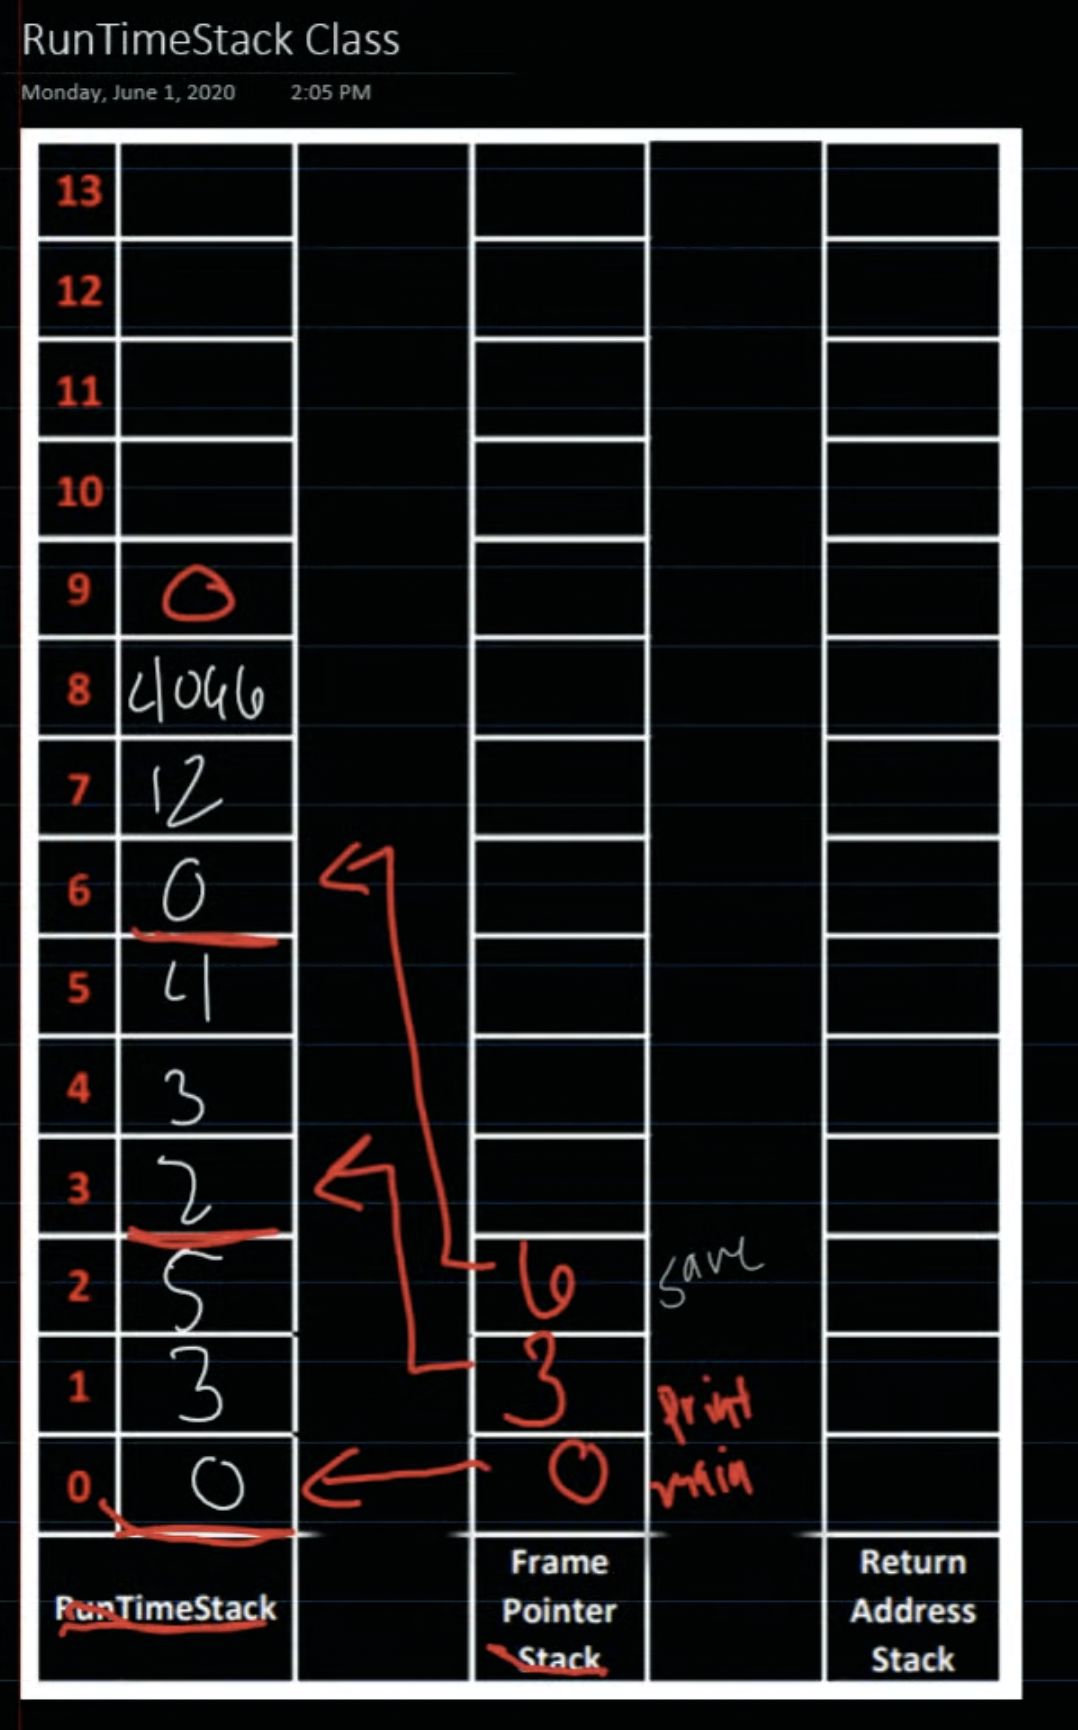 RunTimeStack Class
Monday, June 1, 2020 2:05 PM
13
12
11
10
9 0
8 4046
7 12
6 0
5 4
4 3
3 2
2 5 6 save
1 3 3 print
0 0 0 main
RunTimeStack
Frame
Pointer
Stack
Return
Address
Stack